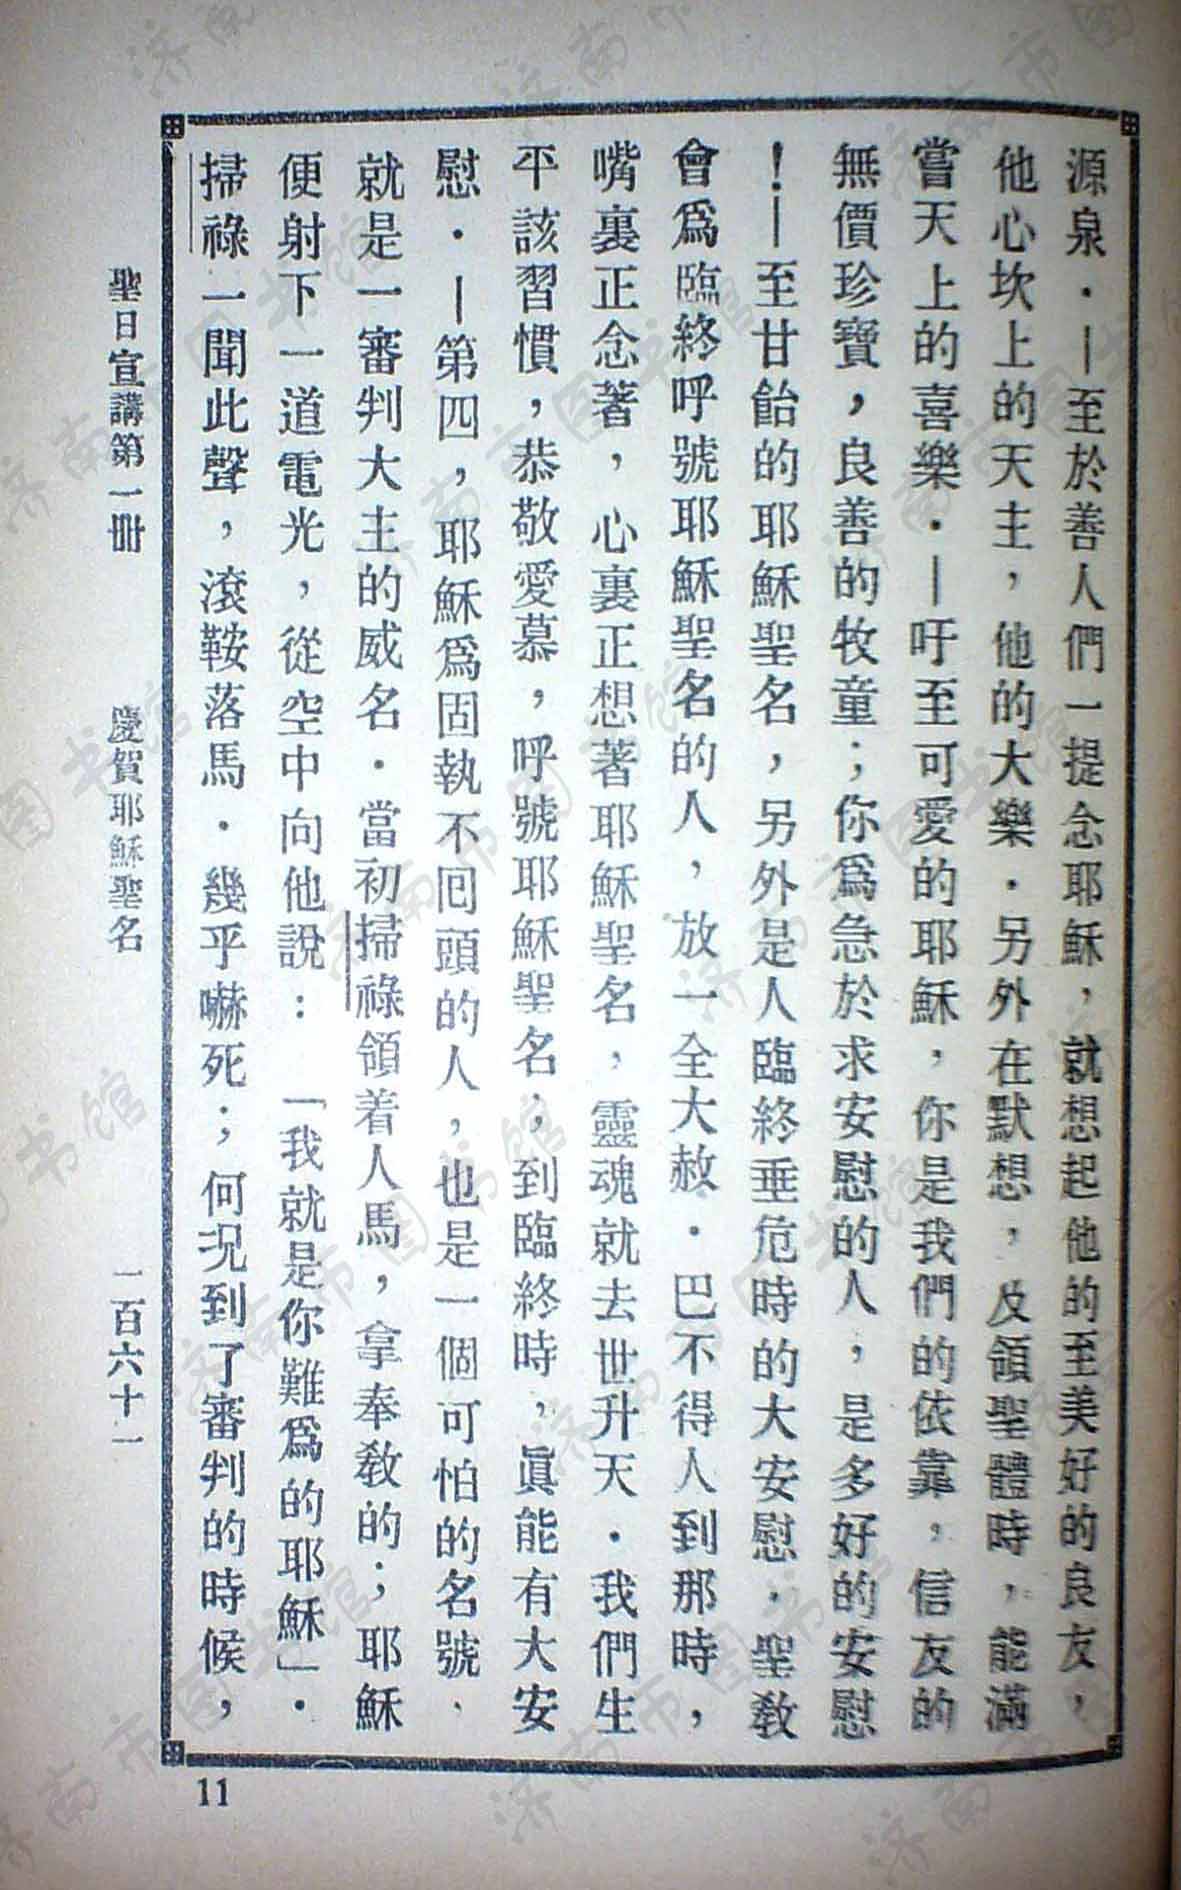 源泉．—至於善人們一提念耶穌，就想起他的至美好的良友，
他心坎上的天主，他的大樂．另外在默想，及領聖體時，能滿
嘗天上的喜樂．—吁至可愛的耶穌，你是我們的依靠，信友的
無價珍寶，良善的牧童；你爲急於求安慰的人，是多好的安慰
！—至甘飴的耶穌聖名，另外是人臨終垂危時的大安慰．聖教
會爲臨終呼號耶穌聖名的人，放一全大赦．巴不得人到那時，
嘴裏正念著，心裏正想著耶穌聖名，靈魂就去世升天．我們生
平該習慣，恭敬愛慕，呼號耶穌聖名；到臨終時，眞能有大安
慰．—第四，耶穌爲固執不囘頭的人，也是一個可怕的名號．
就是一審判大主的威名．當初掃祿領着人馬，拿奉敎的；耶穌
便射下一道電光，從空中向他說：「我就是你難爲的耶穌」．
掃祿一聞此聲，滾鞍落馬．幾乎嚇死；何况到了審判的時候，
聖日宣講第一册　慶賀耶穌聖名　一百六十一
11
济南市图书馆